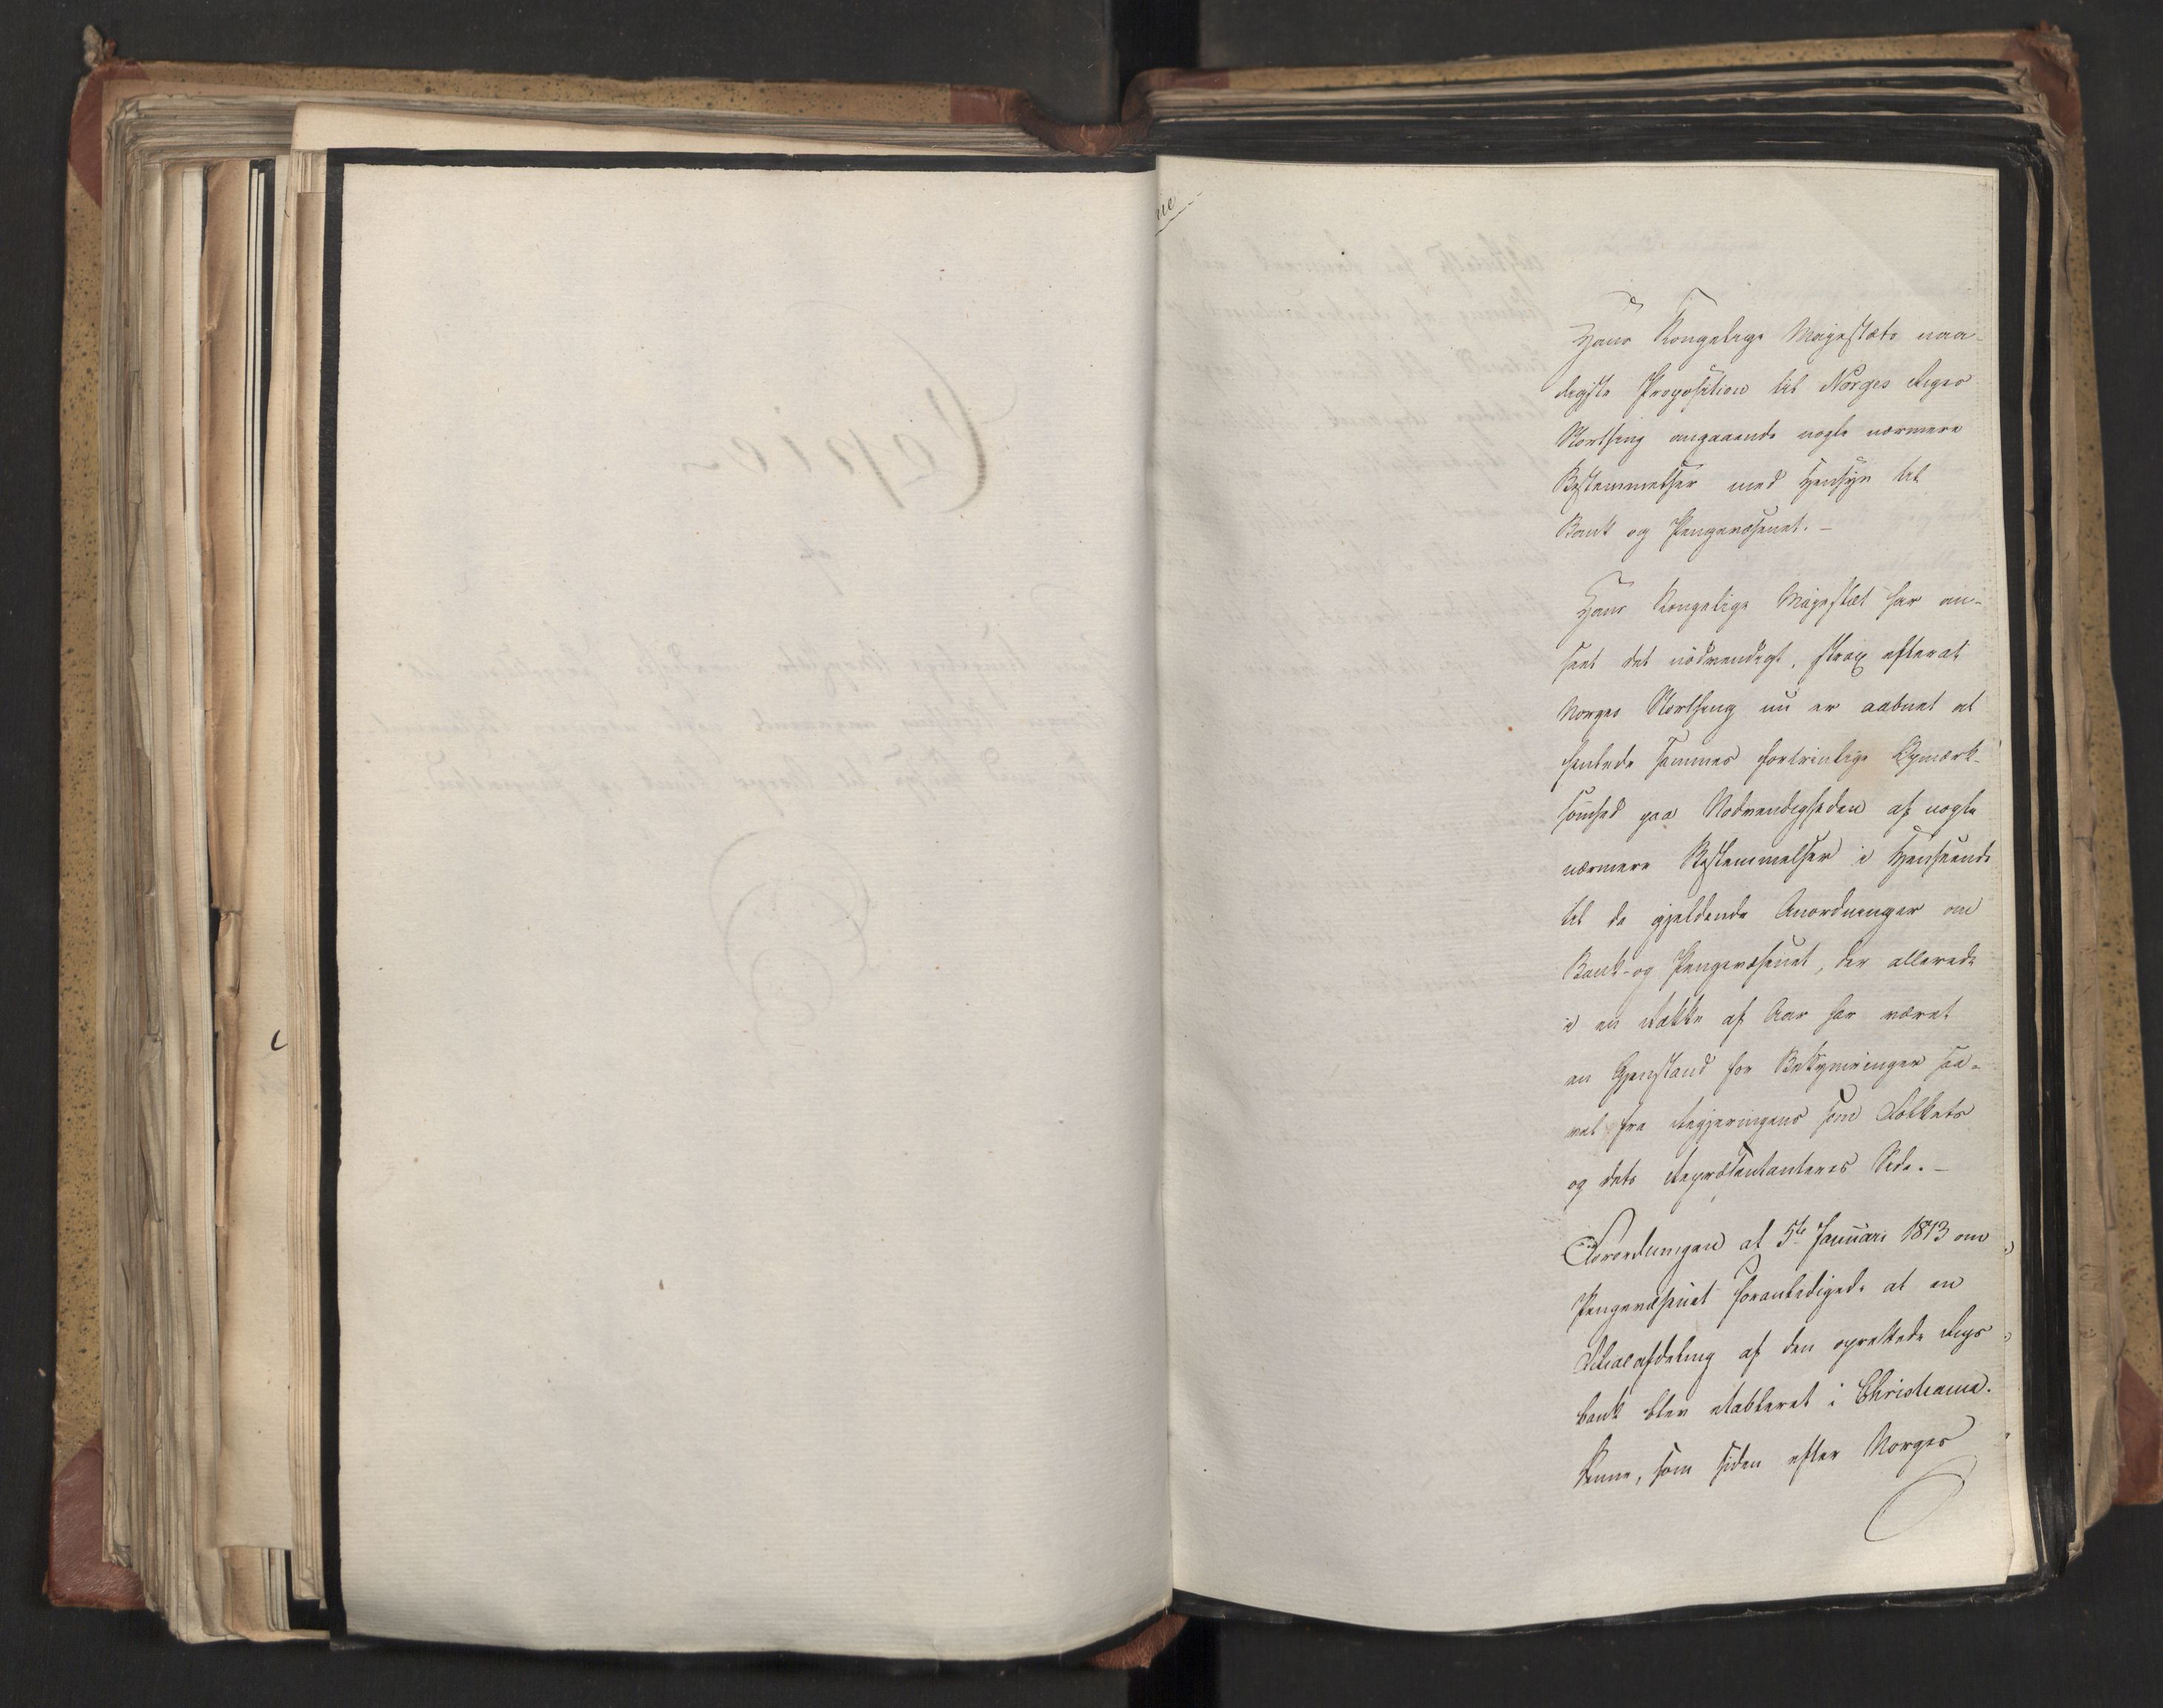 Hans Kongelige Majestæts naa-
digste Proposition til Norges Riges
Storthing angaaende nogle nærmere
Bestemmelser med Hensyn til
Bank og Pengevæsenet. –
Hans Kongelige Majestæt har an-
seet det nödvendigt, strax efterat
Norges Storthing nu er aabnet at
henlede sammes fortrinlige Opmærk-
somhed paa Nödvendigheden af nogle
nærmere Bestemmelser i Henseende
til de gjeldende Anordninger om
Bank- og Pengevæsenet, der allerede
i en Række af Aar har været
en Gjenstand for Bekymringer saa-
vel fra Regjeringens som Folkets
og dets Repræsentanteres Side. –
Forordningen af 5te Januari 1813 om
Pengevæsenet foranledigede at en
Filialafdeling af den oprettede Rigs
bank blev etableret i Christiania.
Denne, som siden efter Norges